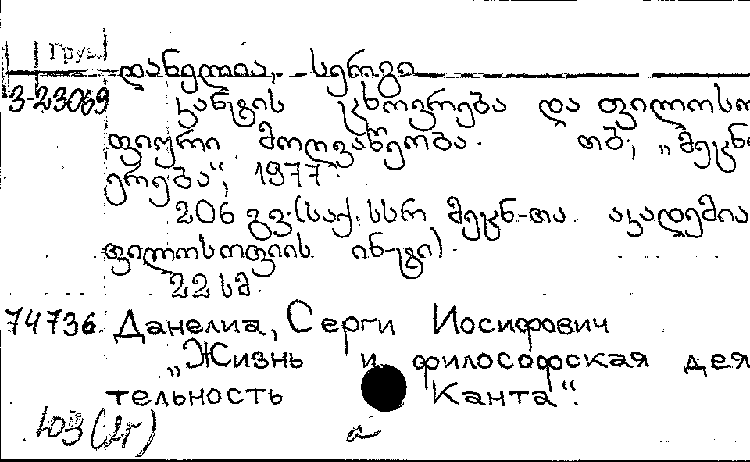 Груз.
დანელია, სერგი
3-23069 კანტის ცხოვრება და ფილოსო
ფიური მოღვაწეობა. თბ., „მეცნი
ერება“, 1977.
206 გვ. (საქ. სსრ მეცნ.-თა აკადემია.
ფილოსოფიის ინ-ტი).
22 სმ.
74736 Данелиа, Серги Иосифович
„Жизнь и философская дея
тельность Канта“.
103(2г)